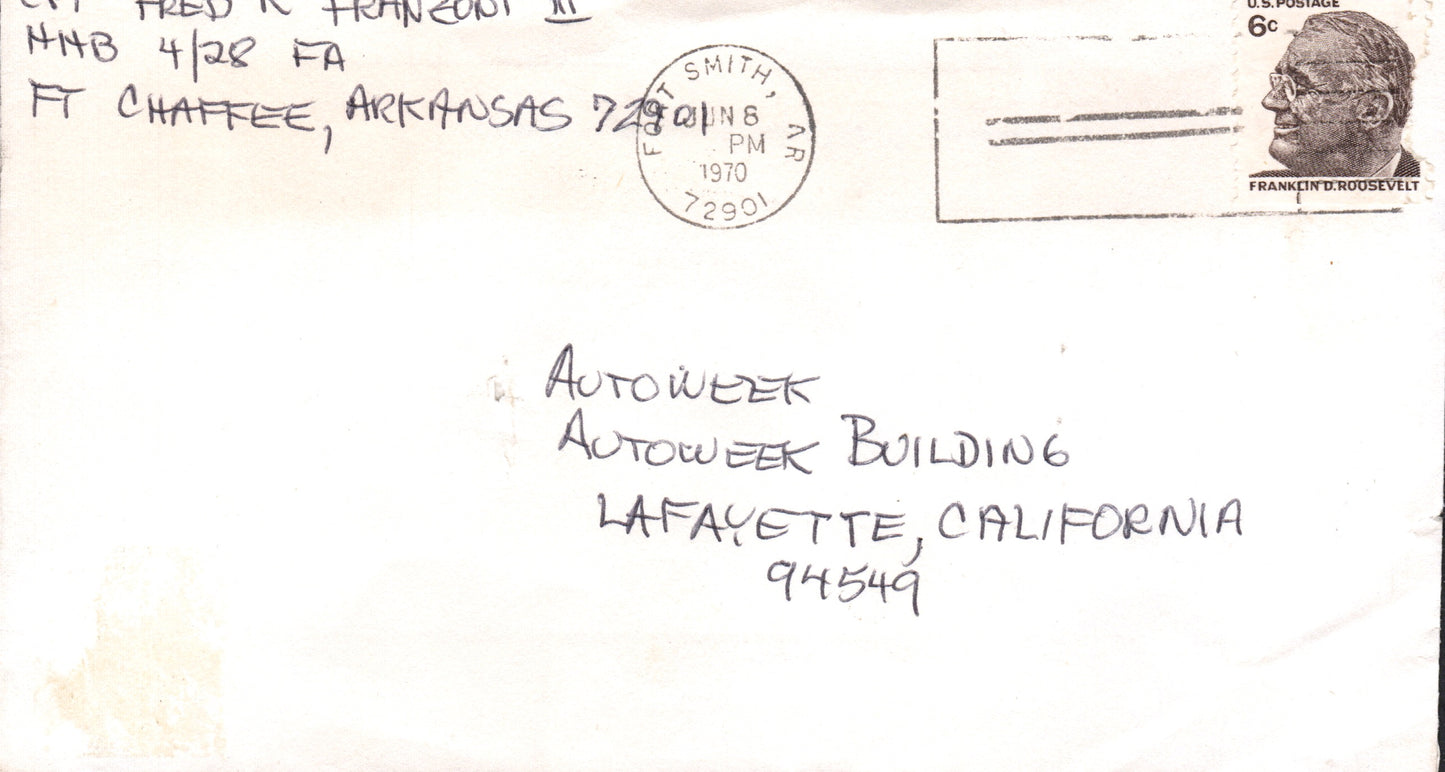 CPT FRED R FRANZONI III
HHB 4/28 FA
FT CHAFFEE, ARKANSAS 72901
FORT SMITH, AR
JUN 8
PM
1970
72901
U.S. POSTAGE
6c
FRANKLIN D. ROOSEVELT
AUTOWEEK
AUTOWEEK BUILDING
LAFAYETTE, CALIFORNIA
94549